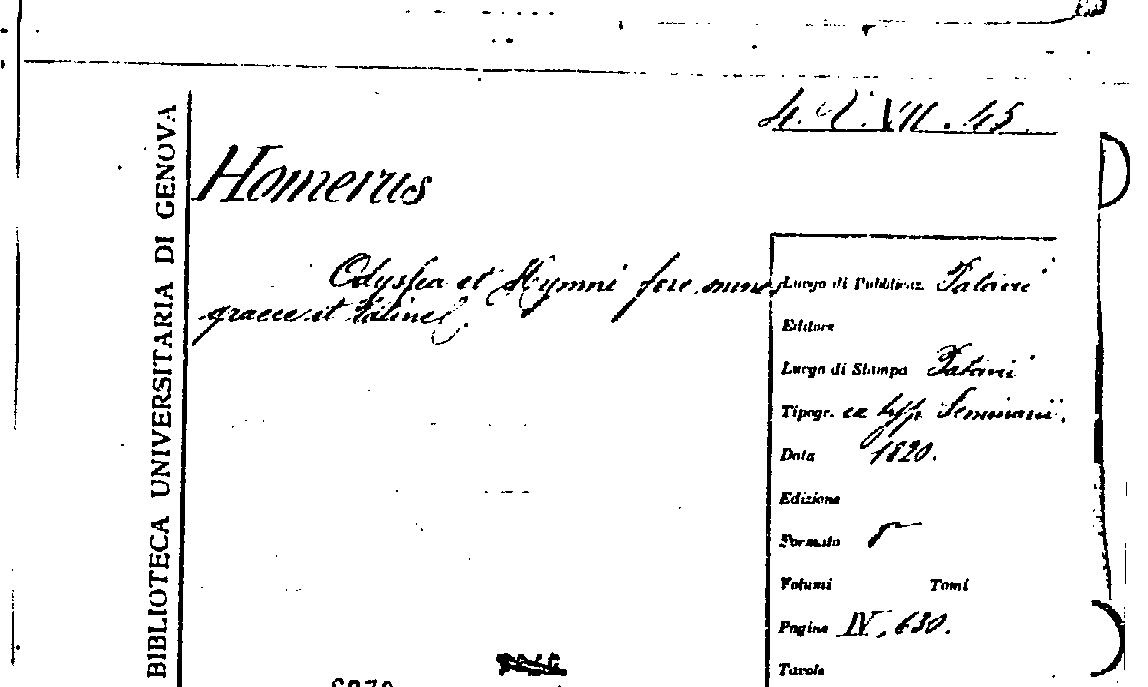 4. VII. 45.
BIBLIOTECA UNIVERSITARIA DI GENOVA
Homerus
Odyssea et Hymni fere omnes
graece et latine.
Luogo di Pubblicaz. Patavii
Editore
Luogo di Stampa Patavii
Tipogr. ex typ. Seminarii.
Data 1820.
Edizione
Formato
Volumi Tomi
Pagine IV, 630.
Tavole